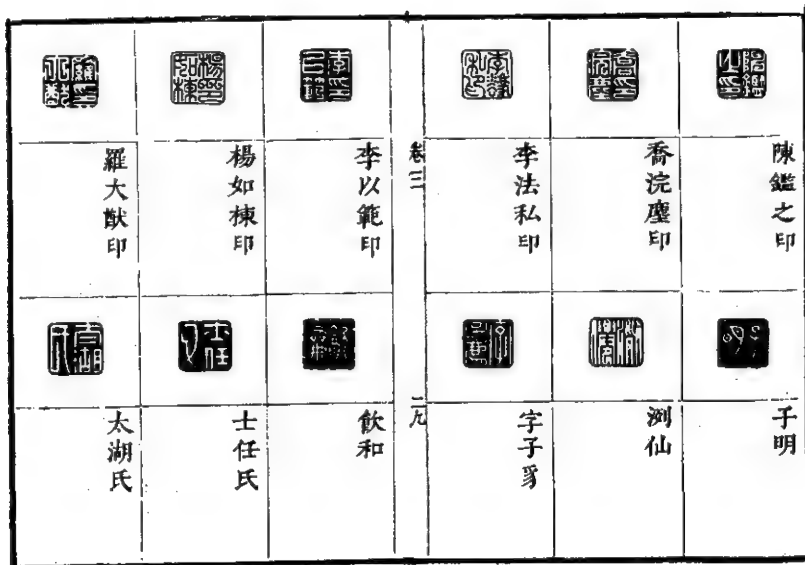 陳鑑之印
喬浣塵印
李法私印
子明
浏仙
字子豸
卷三
二九
李以範印
楊如棟印
羅大猷印
飲和
士任氏
太湖氏